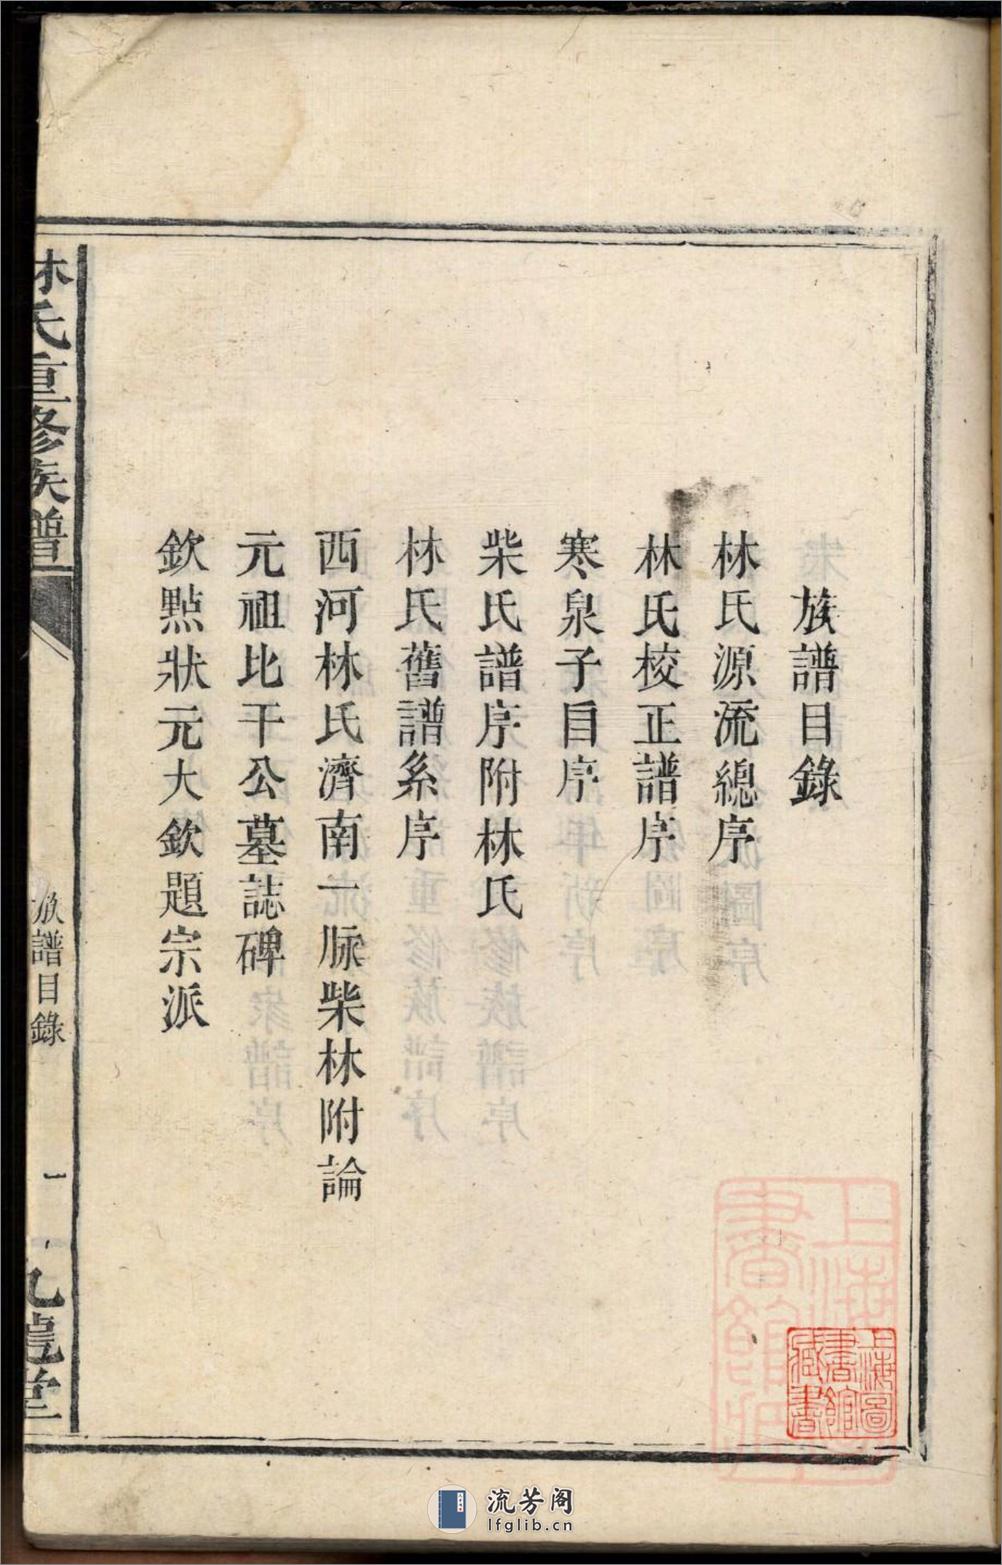 族譜目錄
林氏源流總序
林氏校正譜序
寒泉子目序
柴氏譜序附林氏
林氏舊譜系序
西河林氏濟南一脉柴林附論
元祖比干公墓誌碑
欽點狀元大欽題宗派
林氏重修族譜
族譜目錄
一
九龍堂
上海圖書館藏書
流芳阁
lfglib.cn